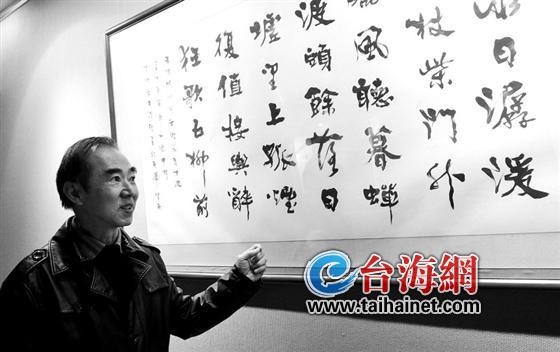 水日潺湲
杖柴門外
臨風聽暮蟬
渡頭餘落日
墟里上孤煙
復值接輿醉
狂歌五柳前
台海網
www.taihainet.com